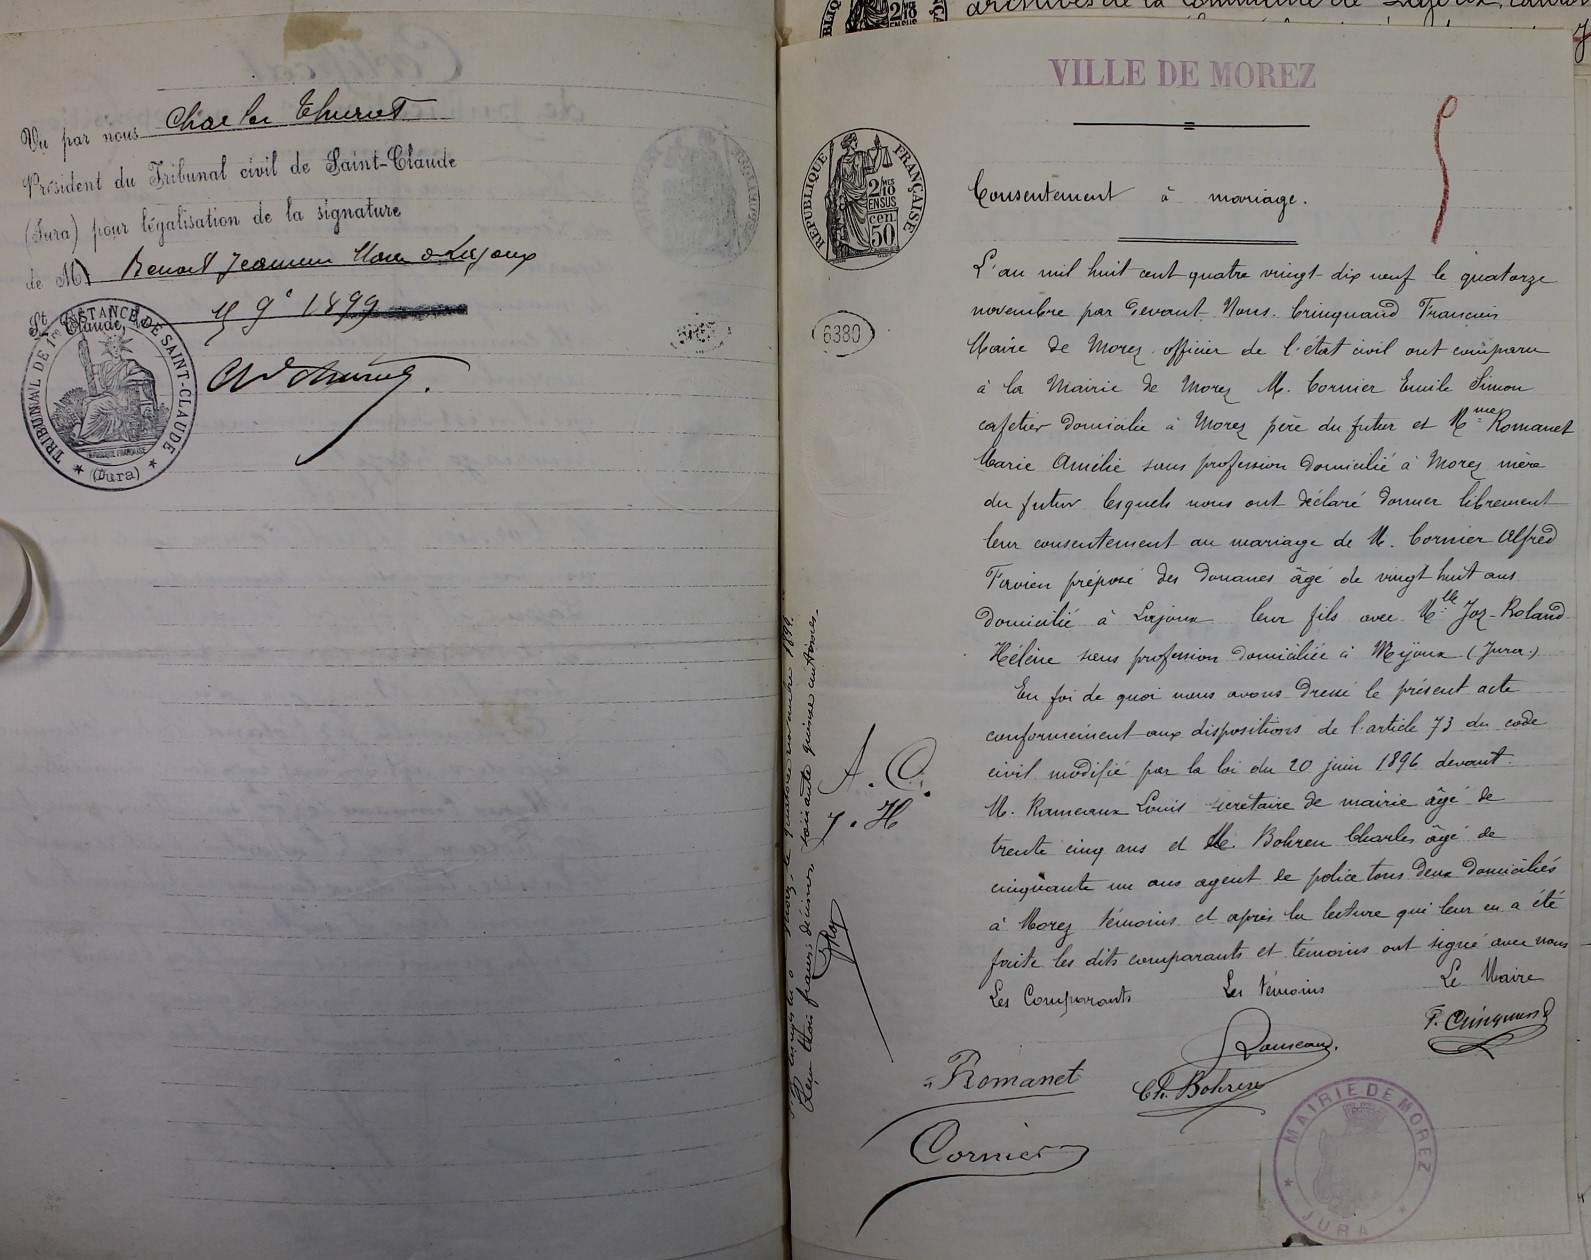 Vu par nous Charles Thuret
Président du Tribunal civil de Saint-Claude
(Jura) pour légalisation de la signature
de M Benoit Jeannin Maire à Lajoux
St Claude, 15 9e 1899
TRIBUNAL DE 1re INSTANCE DE SAINT-CLAUDE
(Jura)
archives de la Commune de Lajoux, canton
VILLE DE MOREZ
RÉPUBLIQUE FRANÇAISE
2/10 MES
EN SUS
50 cen
6380
Consentement à mariage.
L'an mil huit cent quatre vingt-dix neuf le quatorze
novembre par devant Nous. Cringnand Francois
Maire de Morez officier de l'état civil ont comparu
à la Mairie de Morez M. Cornier Emile Simon
cafetier domicilié à Morez père du futur et Mme Romanet
Marie Amélie sans profession domicilié à Morez mère
du futur lesquels nous ont déclaré donner librement
leur consentement au mariage de M. Cornier Alfred
préposé des douanes âgé de vingt huit ans
domicilié à Lajoux leur fils avec Mlle Joz-Roland
Hélène sans profession domiciliée à Mijoux (Jura.)
En foi de quoi nous avons dressé le présent acte
conformément aux dispositions de l'article 73 du code
civil modifié par la loi du 20 juin 1896 devant
M. Rameaux Louis secrétaire de mairie âgé de
trente cinq ans et M. Bohren Charles âgé de
cinquante un ans agent de police tous deux domiciliés
à Morez témoins et après la lecture qui leur en a été
faite les dits comparants et témoins ont signé avec nous
Les Comparants Les témoins Le Maire
Rameaux
Romanet
Ch. Bohren
Cornier
MAIRIE DE MOREZ
JURA
A. C.
J. H
Morez, le quatorze novembre 1899.
Reçu trois francs, décimes soixante quinze centimes.